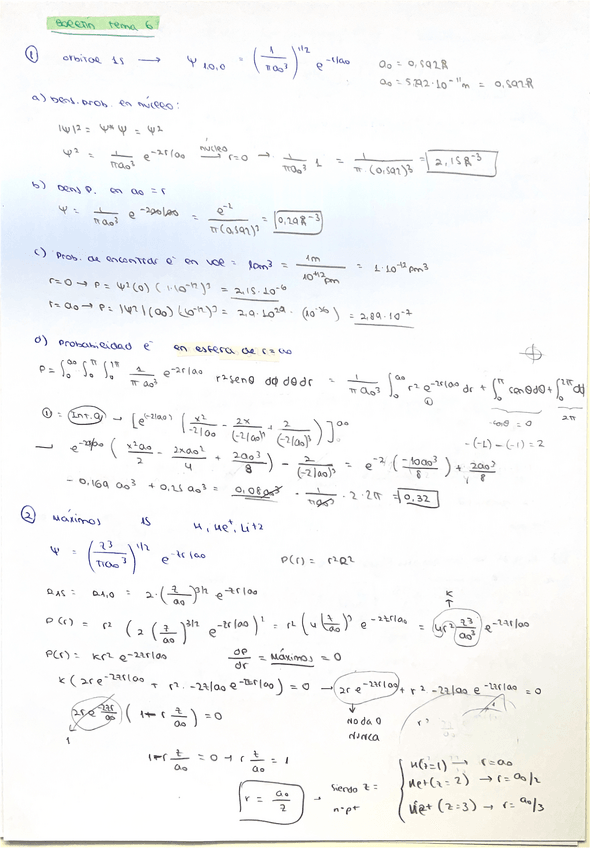 Boletín tema 6
① orbital 1s → Ψ1,0,0 = (1/πa₀³)^1/2 e^-r/a₀ a₀ = 0,592Å
a₀ = 5,292·10^-11 m = 0,592Å
a) Dens. prob. en núcleo:
|Ψ|² = Ψ*Ψ = Ψ²
Ψ² = 1/πa₀³ e^-2r/a₀ núcleo → r=0 → 1/πa₀³ 1 = 1/π·(0,592)³ = 2,15Å^-3
b) Dens P. en a₀ = r
Ψ = 1/πa₀³ e^-2a₀/a₀ = e^-2/π(0,592)³ = 0,29Å^-3
c) Prob. de encontrar e^- en vol = 1pm³ = 1m/10^+12 pm = 1·10^-12 pm³
r=0 → P = Ψ²(0) (1·10^-12)³ = 2,15·10^-6
r=a₀ → P = |Ψ²|(a₀) (10^-12)³ = 2,9·10^29 · (10^-36) = 2,89·10^-7
d) Probabilidad e^- en esfera de r=a₀
P = ∫₀^a₀ ∫₀^π ∫₀^2π 1/πa₀³ e^-2r/a₀ r² senθ dϕ dθ dr = 1/πa₀³ ∫₀^a₀ r² e^-2r/a₀ dr + ∫₀^π senθdθ + ∫₀^2π dϕ
①
-cosθ = 0 2π
-(-1)-(-1) = 2
① = → [e^(-2/a₀) (x²/-2/a₀ - 2x/(-2/a₀)² + 2/(-2/a₀)³)]^a₀
→ e^-2a₀/a₀ (x²a₀/2 - 2xa₀²/4 + 2a₀³/8) - 2/(-2/a₀)³ = e^-2 (-10a₀³/8) + 2a₀³/8
-0,169 a₀³ + 0,25 a₀³ = 0,08a₀³ · 1/πa₀³ · 2·2π = 0,32
② Máximos 1s H, He⁺, Li+2
Ψ = (z³/πa₀³)^1/2 e^-zr/a₀ P(r) = r²R²
R1s = R1,0 = 2·(z/a₀)^3/2 e^-zr/a₀
K
P(r) = r² (2 (z/a₀)^3/2 e^-zr/a₀)² = r² (4 (z/a₀)³ e^-2zr/a₀ = 4r² z³/a₀³ e^-2zr/a₀
P(r) = Kr² e^-2zr/a₀ dP/dr = Máximos = 0
K (2re^-2zr/a₀ + r² · -2z/a₀ e^-2zr/a₀) = 0 → 2re^-2zr/a₀ + r² -2z/a₀ e^-2zr/a₀ = 0
2re^-2zr/a₀ (1-r z/a₀) = 0 no da 0 nunca r²
1
1-r z/a₀ = 0 → r z/a₀ = 1
r = a₀/z → siendo z = nº p⁺
H(z=1) → r=a₀
He+(z=2) → r=a₀/2
(z=3) → r=a₀/3